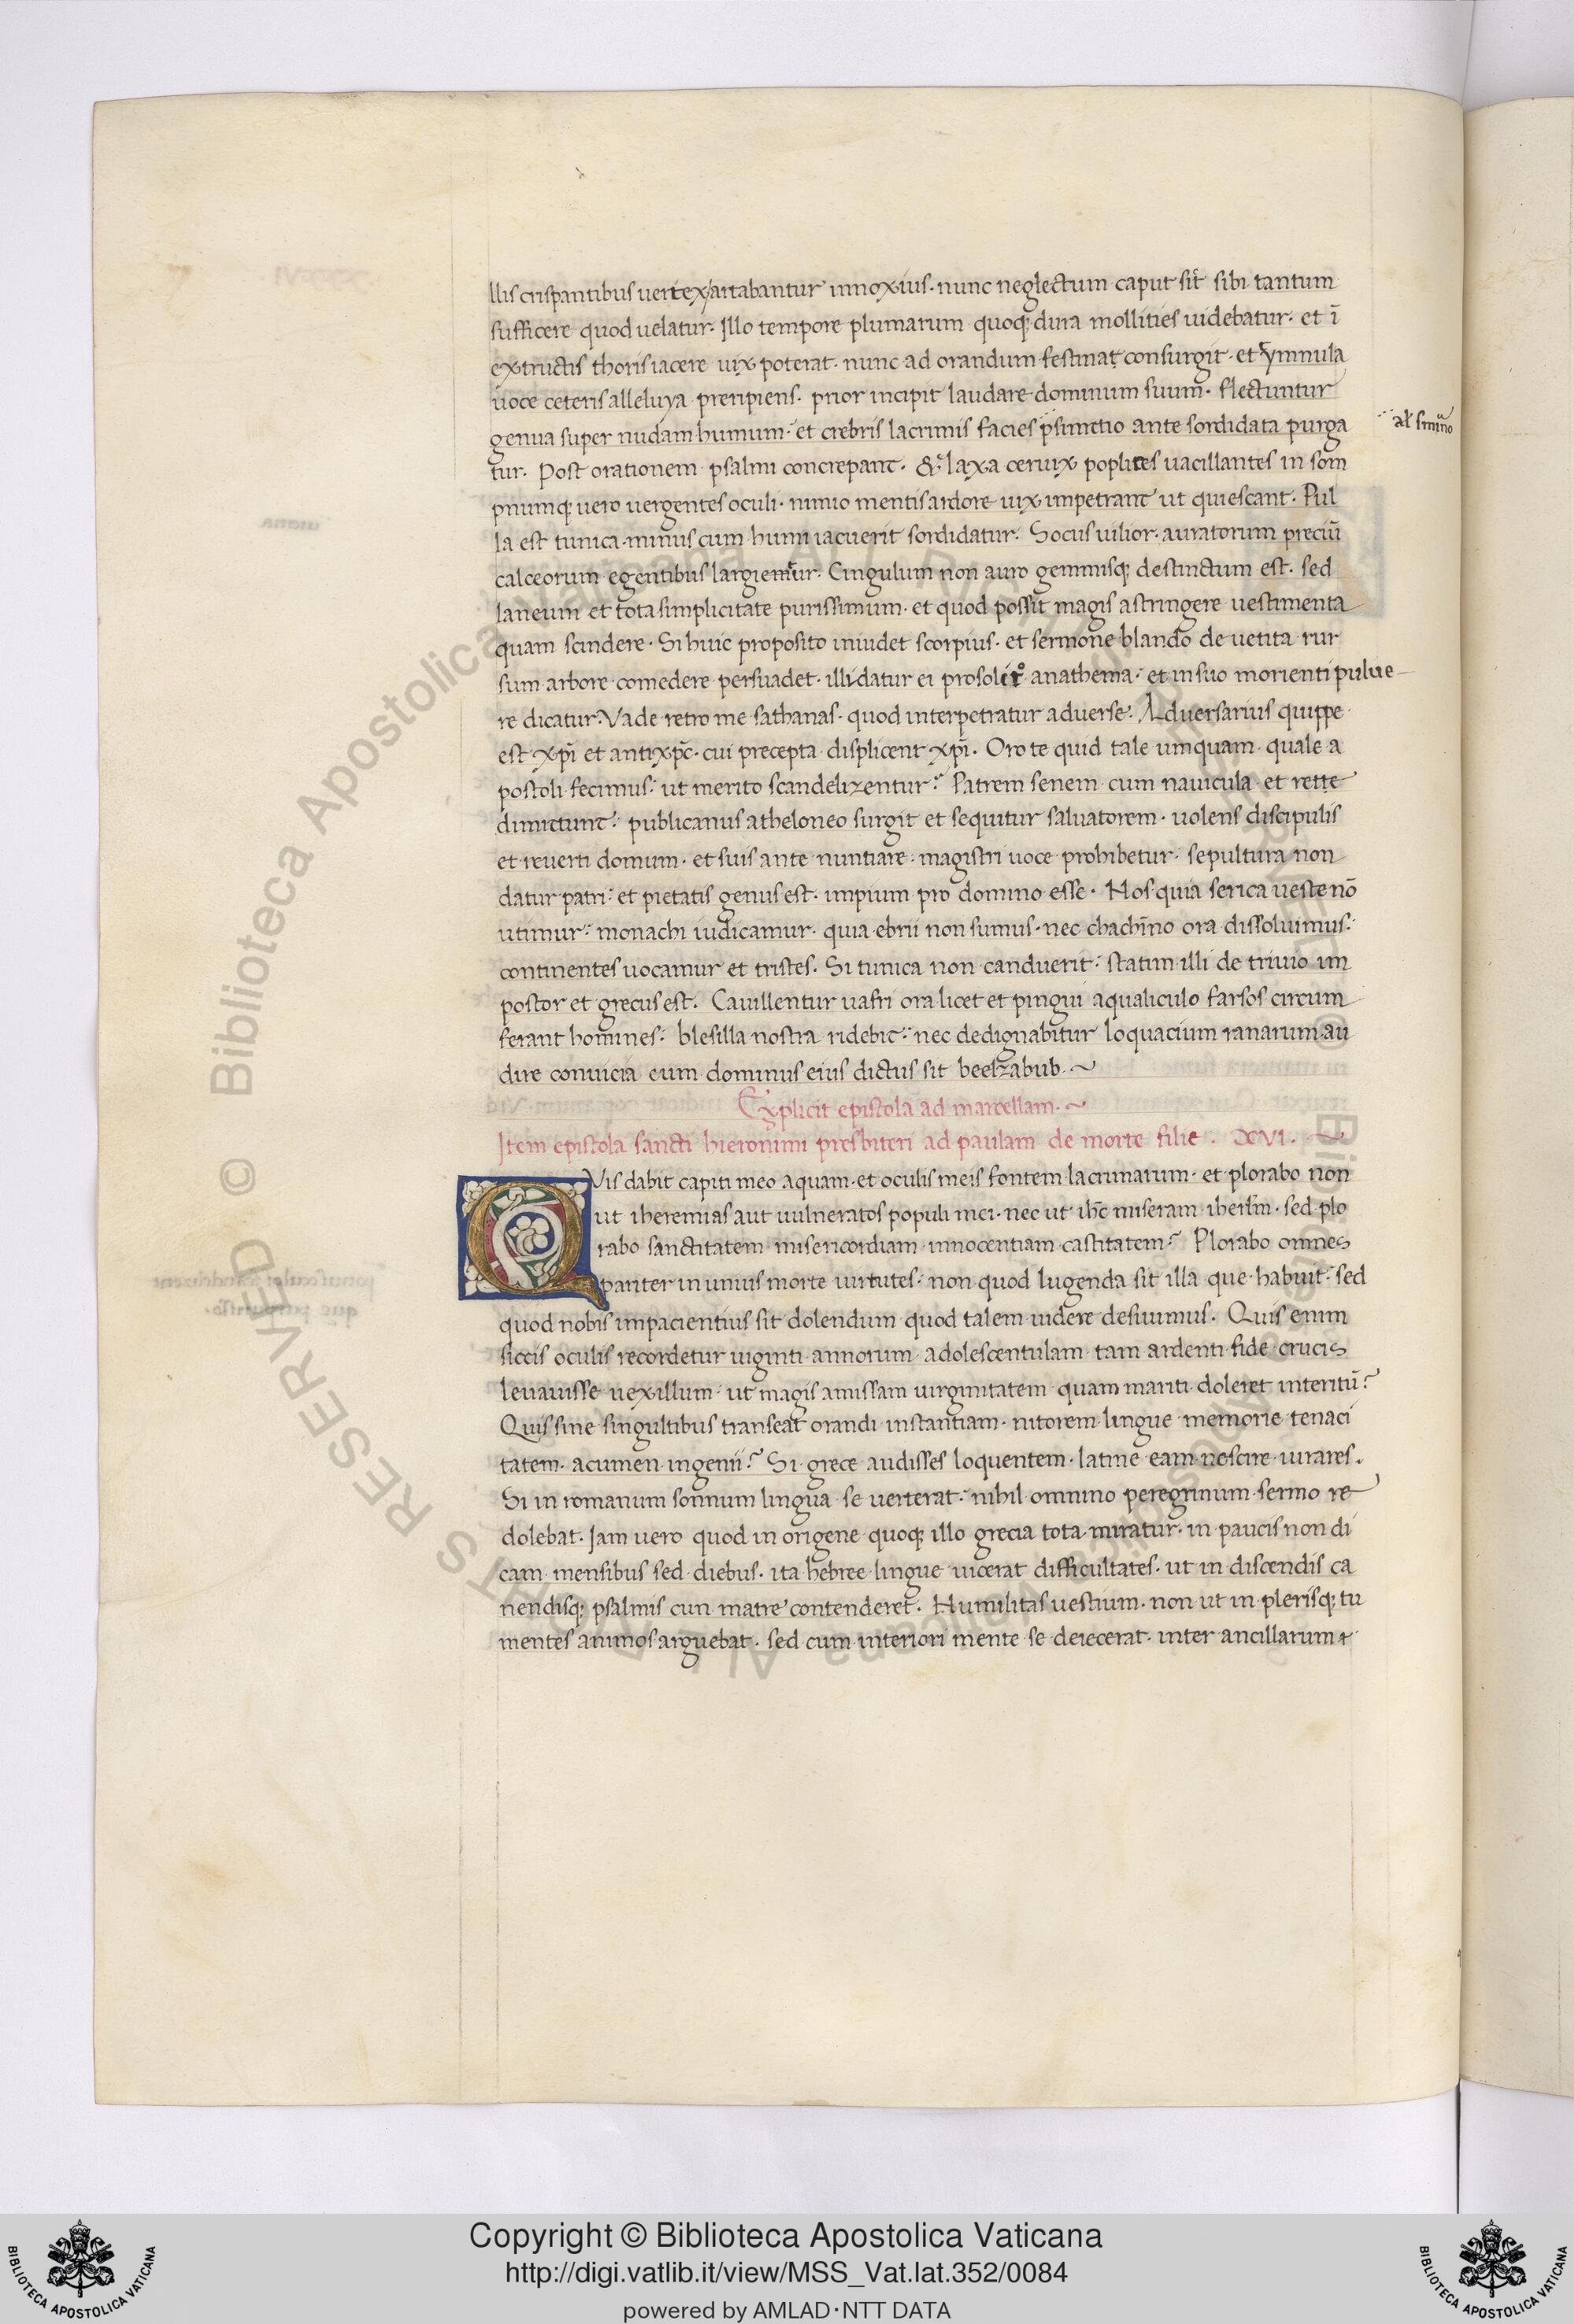 llis crispantibus uertex artabantur innoxius · nunc neglectum caput sit̃ sibi tantum
sufficere quod uelatur · Illo tempore plumarum quoq; dura mollities uidebatur · et ī
extructis thoris iacere uix poterat · nunc ad orandum festinat consurgit · et ymnula
uoce ceteris alleluya preripiens · prior incipit laudare dominum suum̃ · flectuntur
genua super nudam humum · et crebris lacrimis facies ante sordidata purga
al̃
tur · Post orationem psalmi concrepant · & laxa ceruix poplites uacillantes in som̃
pnumq; uero uergentes oculi · nimio mentis ardore uix impetrant ut quiescant · Pul
la est tunica · minus cum humi iacuerit sordidatur · Socus uilior · auratorum preciū
calceorum egentibus largiemur · Cingulum non auro gemmisq; destinctum est · sed
laneum et tota simplicitate purissimum · et quod possit magis astringere uestimenta
quam scindere · Si huic proposito inuidet scorpius · et sermone blando de uetita rur
sum arbore comedere persuadet · illidatur ei pro solit̊ anathema · et in suo morienti pulue
re dicatur · Vade retro me sathanas · quod interpetratur aduerse · Aduersarius quippe
est xp̄i et antixp̄c · cui precepta displicent xp̄i · Oro te quid tale umquam quale a
postoli fecimus · ut merito scandelizentur? Patrem senem cum nauicula et rette
dimittunt · publicanus a theloneo surgit et sequitur saluatorem · uolens discipulis
et reuerti domum · et suis ante nuntiare · magistri uoce prohibetur · sepultura non
datur patri · et pietatis genus est · impium pro domino esse · Nos quia serica ueste nō
utimur · monachi iudicamur · quia ebrii non sumus · nec chachīno ora dissoluimus ·
continentes uocamur et tristes · Si tunica non canduerit · statim illi de triuio im
postor et grecus est · Cauillentur uafri ora licet et pingui aqualiculo farsos circum
ferant homines · blesilla nostra ridebit · nec dedignabitur loquacium ranarum au
dire conuicia cum dominus eius dictus sit beelzabub · ~
Explicit epistola ad marcellam · ~
Item epistola sancti hieronimi presbiteri ad paulam de morte filie · XVI · ~
QVis dabit capiti meo aquam · et oculis meis fontem lacrimarum · et plorabo non
ut iheremias aut uulneratos populi mei · nec ut ih̄c miseram iherlm̄ · sed plo
rabo sanctitatem misericordiam innocentiam castitatem? Plorabo omnes
pariter in unius morte uirtutes · non quod lugenda sit illa que habuit · sed
quod nobis impacientius sit dolendum quod talem uidere desiuimus · Quis enim
siccis oculis recordetur uiginti annorum adolescentulam tam ardenti fide crucis
leuauisse uexillum · ut magis amissam uirginitatem quam mariti doleret interitū?
Quis sine singultibus transeat orandi instantiam · nitorem lingue memorie tenaci
tatem · acumen ingenii? Si grece audisses loquentem · latine eam nescire iurares ·
Si in romanum sonnum lingua se uerterat · nihil omnino peregrinum sermo re
dolebat · Iam uero quod in origene quoq; illo grecia tota miratur · in paucis non di
cam mensibus sed diebus · ita hebree lingue uicerat difficultates · ut in discendis ca
nendisq; psalmis cun matre contenderet · Humilitas uestium · non ut in plerisq; tu
mentes animos arguebat · sed cum interiori mente se deiecerat · inter ancillarum ⁊
Copyright © Biblioteca Apostolica Vaticana
http://digi.vatlib.it/view/MSS_Vat.lat.352/0084
powered by AMLAD·NTT DATA
BIBLIOTECA APOSTOLICA VATICANA
BIBLIOTECA APOSTOLICA VATICANA